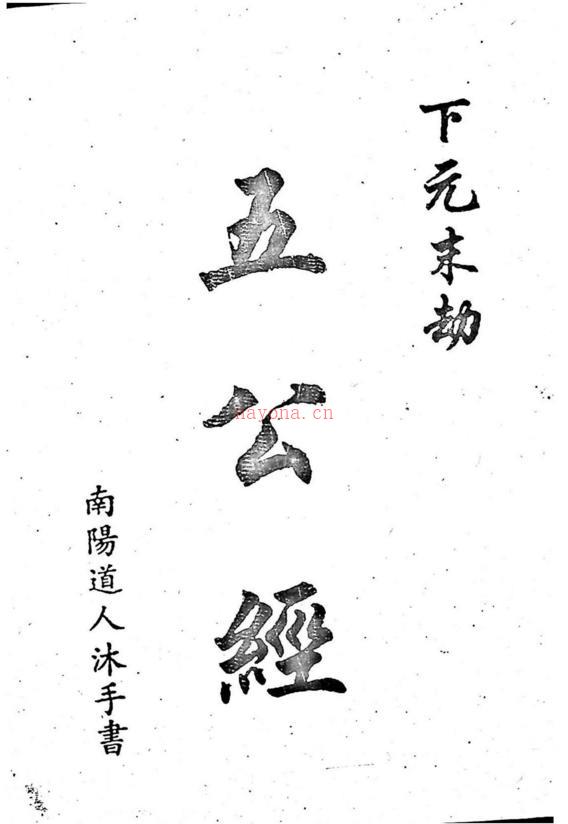 下元末劫
五公經
nayona.cn
南陽道人沐手書